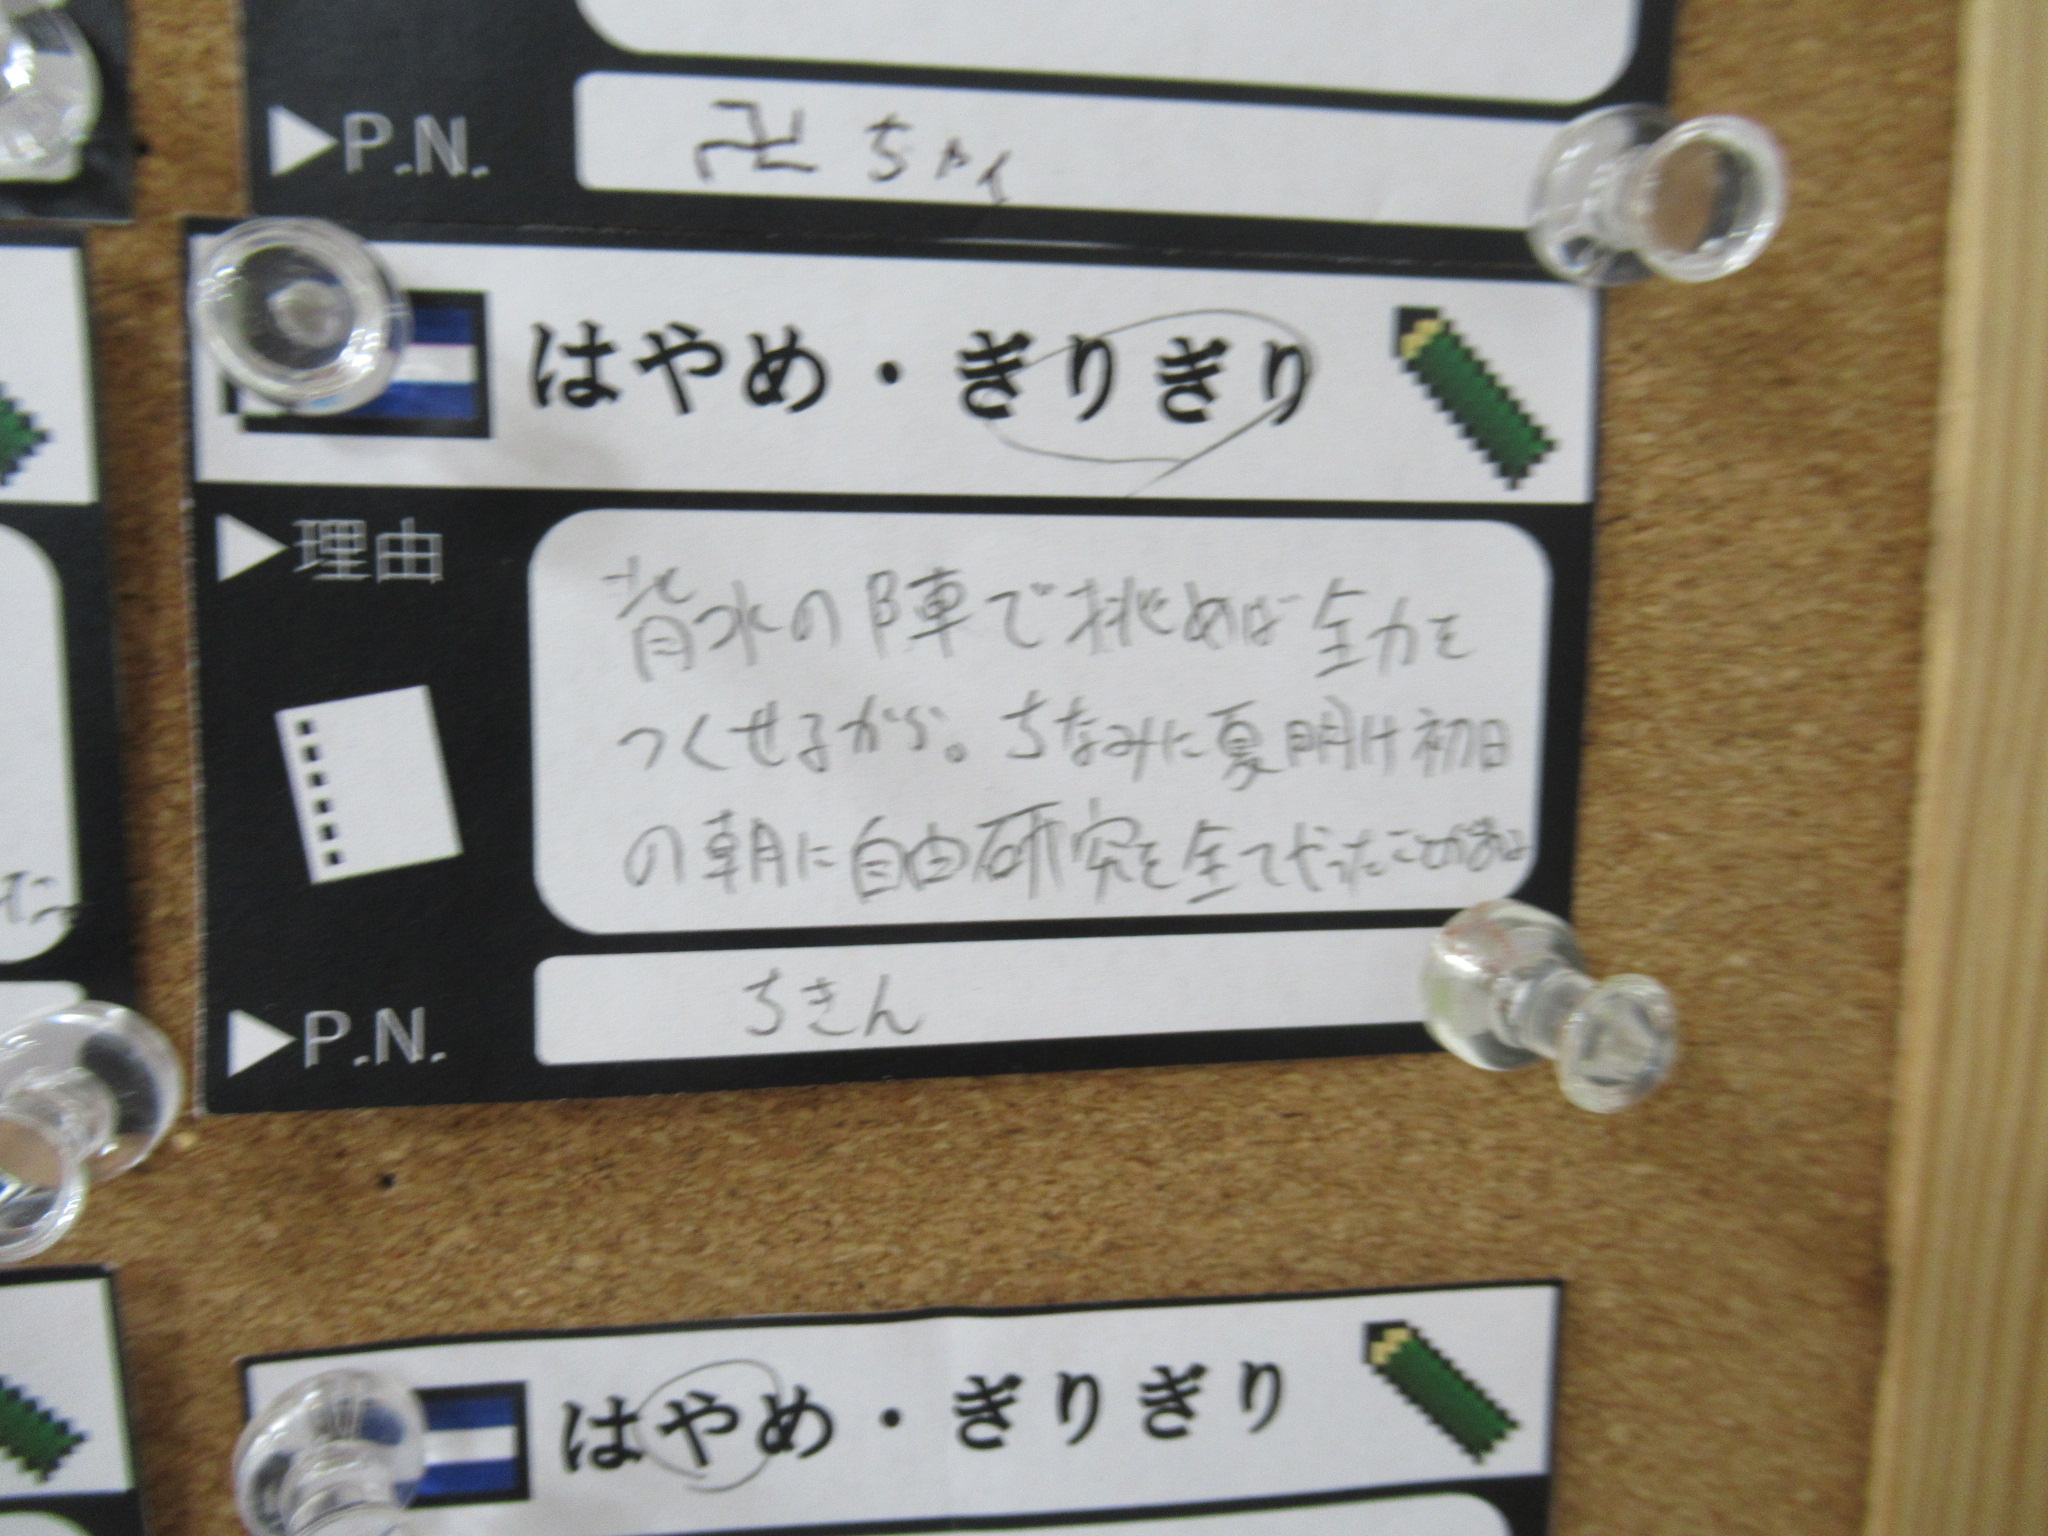 ▶P.N.
卍ちゃん
はやめ・ぎりぎり
▶理由
背水の陣で挑めば全力を
つくせるから。ちなみに夏明け初日
の朝に自由研究を全てやったことがある
▶P.N.
ちきん
はやめ・ぎりぎり